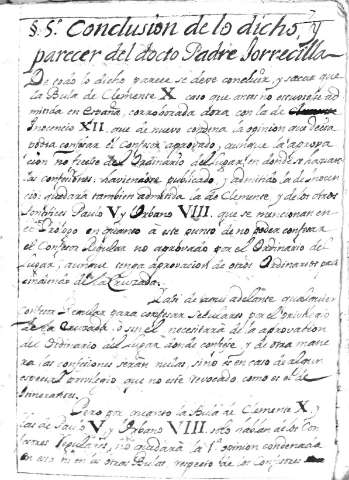 §. 5.º Conclusion de lo dicho, y
parecer del docto Padre Torrecilla
De todo lo dicho parece se deve concluir, y sacar que
la Bula de Clemente X caso que antes no estuviese ad
mitida en España, corroborada aora con la de
Inocencio XII, que de nuevo condena la opinion que decia
podia confesar el Confesor aprovado, aunque la aprova
cion no fuese del Ordinario del lugar, en donde se hacian
las confesiones: haviendose publicado, y admitido la de Inocen
cio: quedará tambien admitida la de Clemente, y de los otros
Pontifices Paulo V y Urbano VIII, que se mencionan en
el Prologo en quanto a este punto de no poder confesar
el Confesor Regular no aprovado por el Ordinario del
lugar, aunque tenga aprovacion de otros Ordinarios para
en de la Cruzada.
de aqui adelante qualquier
Confesor Regular para confesar Seculares por el privilegio
de la Cruzada, ó sin el necesitará de la aprovation
del Ordinario del lugar donde confiese, y de otra mane
ra las confesiones serán nulas, sino es en caso de algun
especial privilegio que no esté revocado como es el de
Inocencio.
Pero por quanto la Bula de Clemente X, y
las de Paulo V, y Urbano VIII solo hablan de los Con
fesores Regulares, no quedará la 1ª opinion condenada
en esta ni en las otras Bulas respecto de los Confesores